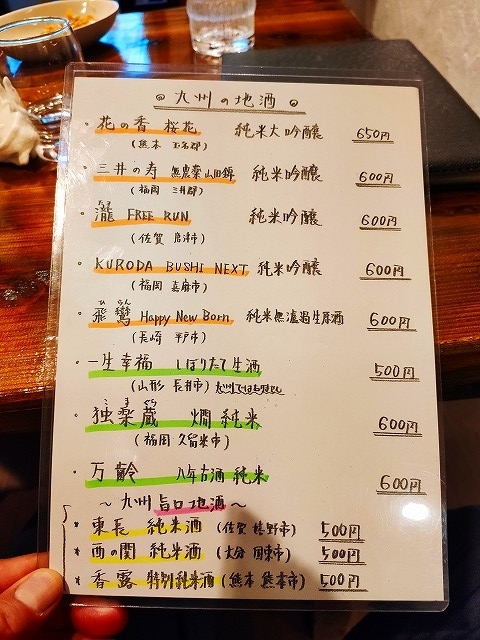 ◎ 九州の地酒 ◎
・花の香 桜花 純米大吟醸 650円
(熊本 玉名郡)
・三井の寿 無農薬山田錦 純米吟醸 600円
(福岡 三井郡)
・瀧 FREE RUN 純米吟醸 600円
(佐賀 唐津市)
・KURODA BUSHI NEXT 純米吟醸 600円
(福岡 嘉麻市)
ひ らん
・飛鸞 Happy New Born 純米無濾過生原酒 600円
(長崎 平戸市)
・一生幸福 しぼりたて生酒 500円
(山形 長井市)
こ ま ぐら
・独楽蔵 燗純米 600円
(福岡 久留米市)
・万齢 八年古酒 純米 600円
〜九州旨口地酒〜
* 東長 純米酒 (佐賀 嬉野市) 500円
* 西の関 純米酒 (大分 国東市) 500円
* 香露 特別純米酒 (熊本 熊本市) 500円